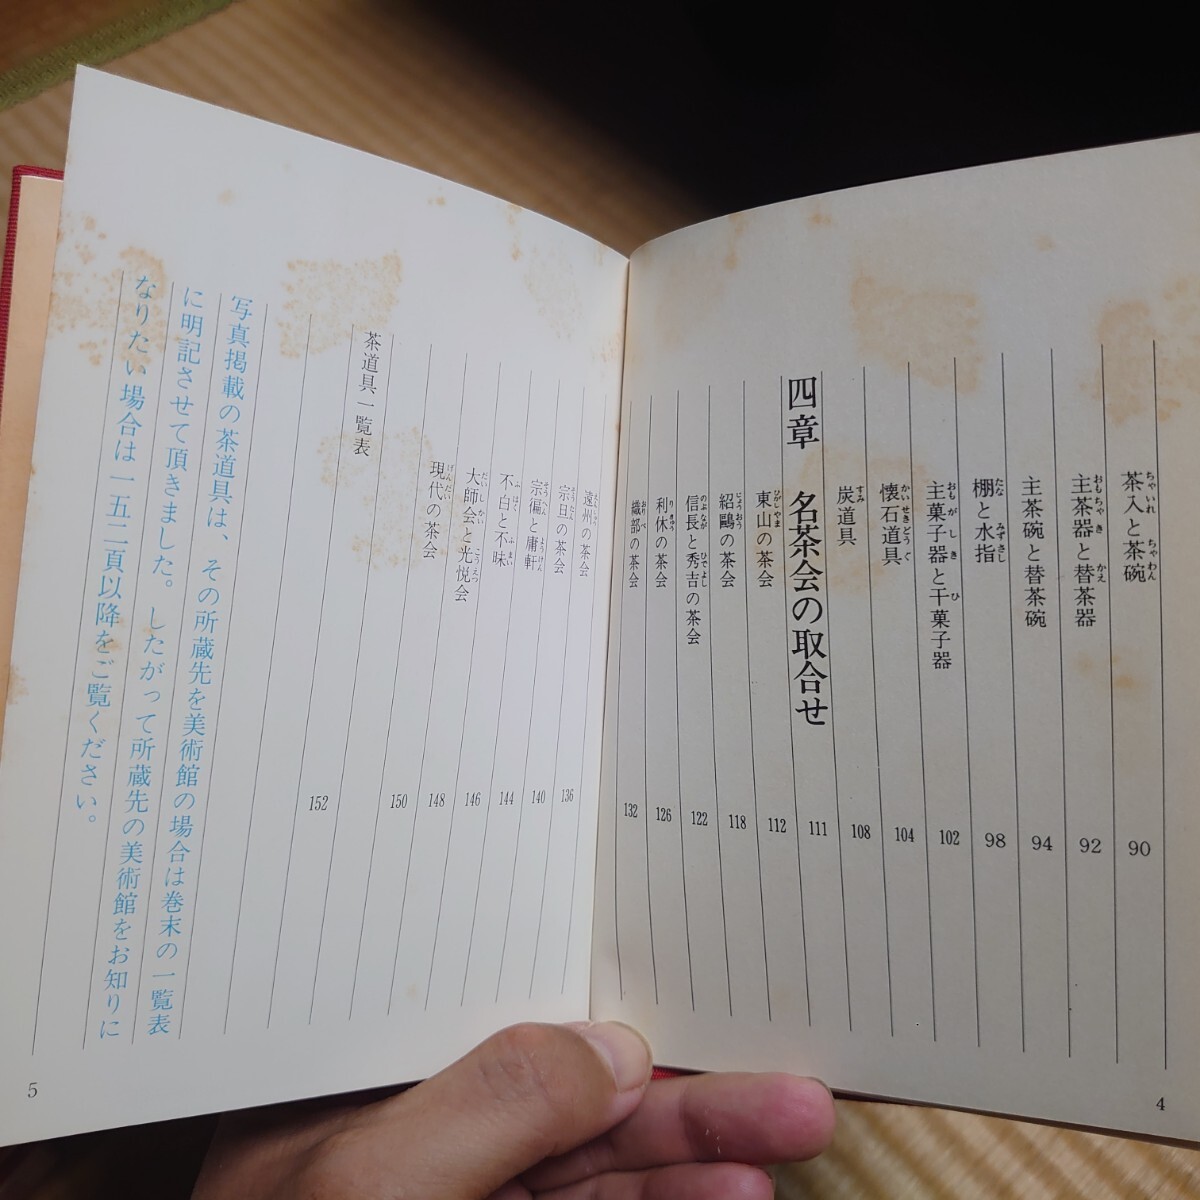 茶入と茶碗 90
主茶器と替茶器 92
主茶碗と替茶碗 94
棚と水指 98
主菓子器と干菓子器 102
懐石道具 104
炭道具 108
四章 名茶会の取合せ 111
東山の茶会 112
紹鷗の茶会 118
信長と秀吉の茶会 122
利休の茶会 126
織部の茶会 132
4
遠州の茶会 136
宗旦の茶会 140
宗徧と庸軒 144
不白と不昧 146
大師会と光悦会 148
現代の茶会 150
茶道具一覧表 152
写真掲載の茶道具は、その所蔵先を美術館の場合は巻末の一覧表
に明記させて頂きました。したがって所蔵先の美術館をお知りに
なりたい場合は一五二頁以降をご覧ください。
5